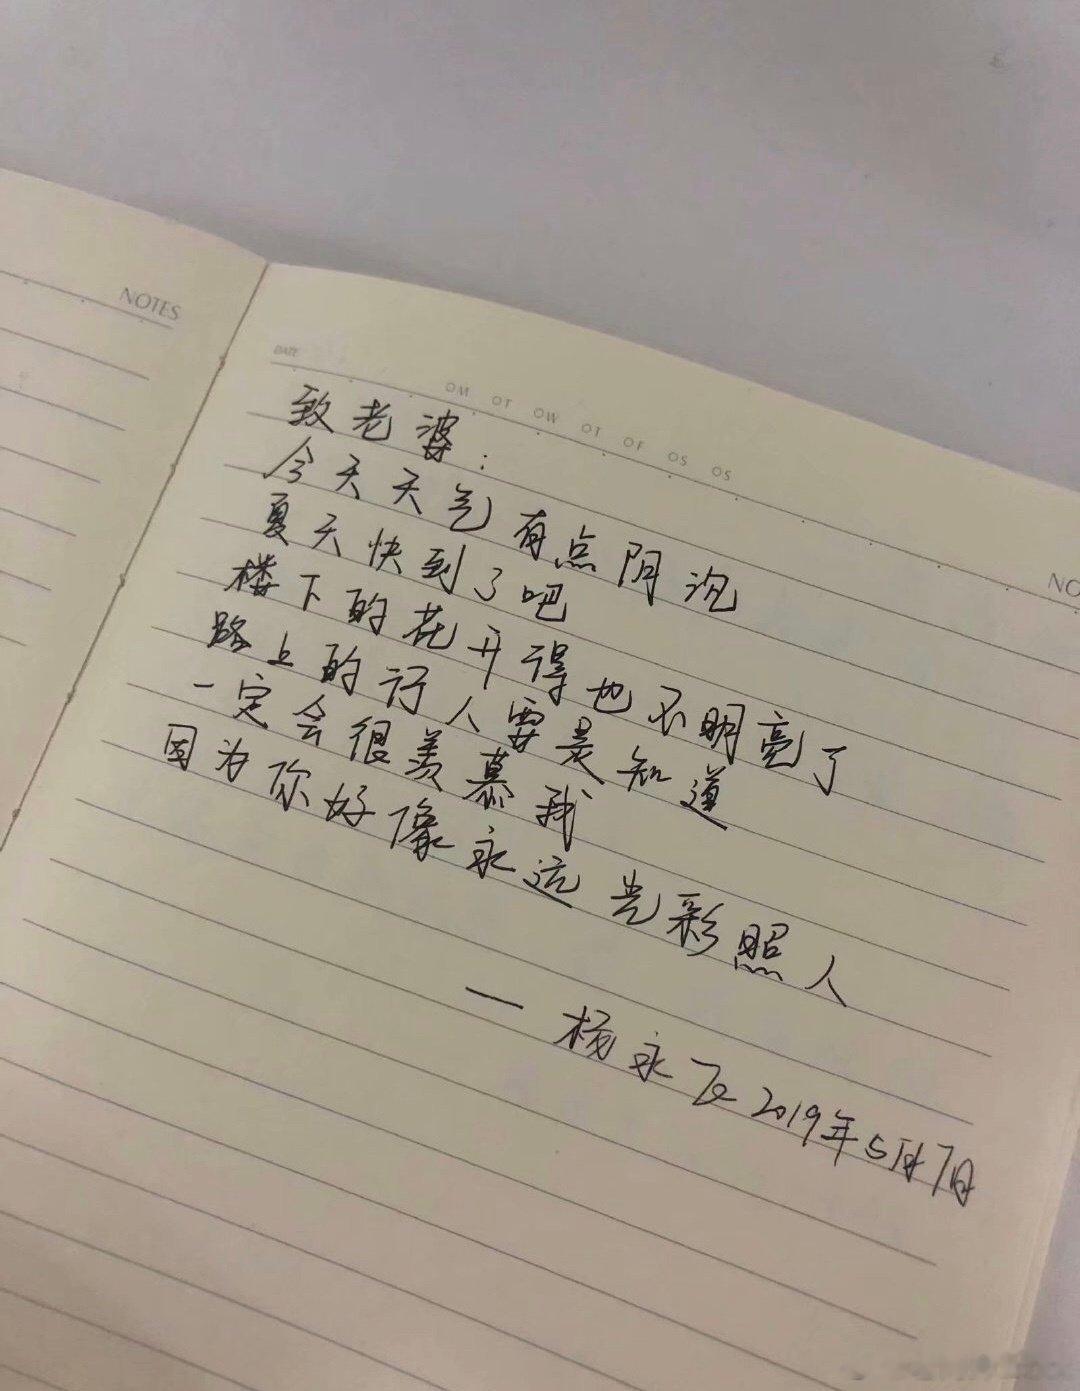 NOTES
DATE
OM OT OW OT OF OS OS
NO
致老婆：
今天天气有点阴沉
夏天快到了吧
楼下的花开得也不明亮了
路上的行人要是知道
一定会很羡慕我
因为你好像永远光彩照人
——杨永飞 2019年5月7日